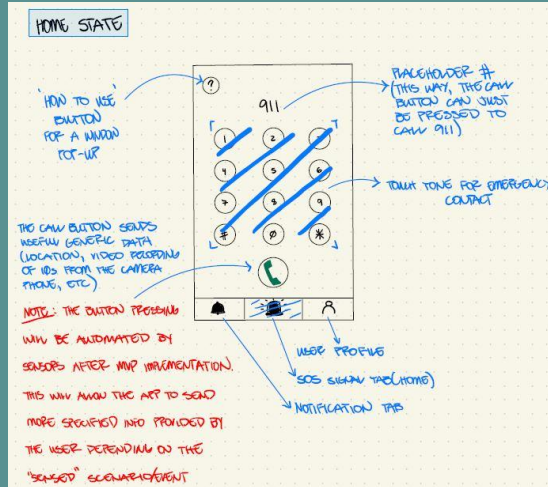 HOME STATE
'HOW TO USE'
BUTTON
FOR A WINDOW
POP-UP
?
911
PLACEHOLDER #
(THIS WAY, THE CALL
BUTTON CAN JUST
BE PRESSED TO
CALL 911)
1 2 3
4 5 6
7 8 9
# 0 *
TOUCH TONE FOR EMERGENCY
CONTACT
THE CALL BUTTON SENDS
USEFUL GENERIC DATA
(LOCATION, VIDEO RECORDING
OF IDS FROM THE CAMERA
PHONE, ETC)
NOTE: THE BUTTON PRESSING
WILL BE AUTOMATED BY
SENSORS AFTER MVP IMPLEMENTATION.
THIS WILL ALLOW THE APP TO SEND
MORE SPECIFIED INFO PROVIDED BY
THE USER DEPENDING ON THE
"SENSED" SCENARIO/EVENT
USER PROFILE
SOS SIGNAL TAB (HOME)
NOTIFICATION TAB